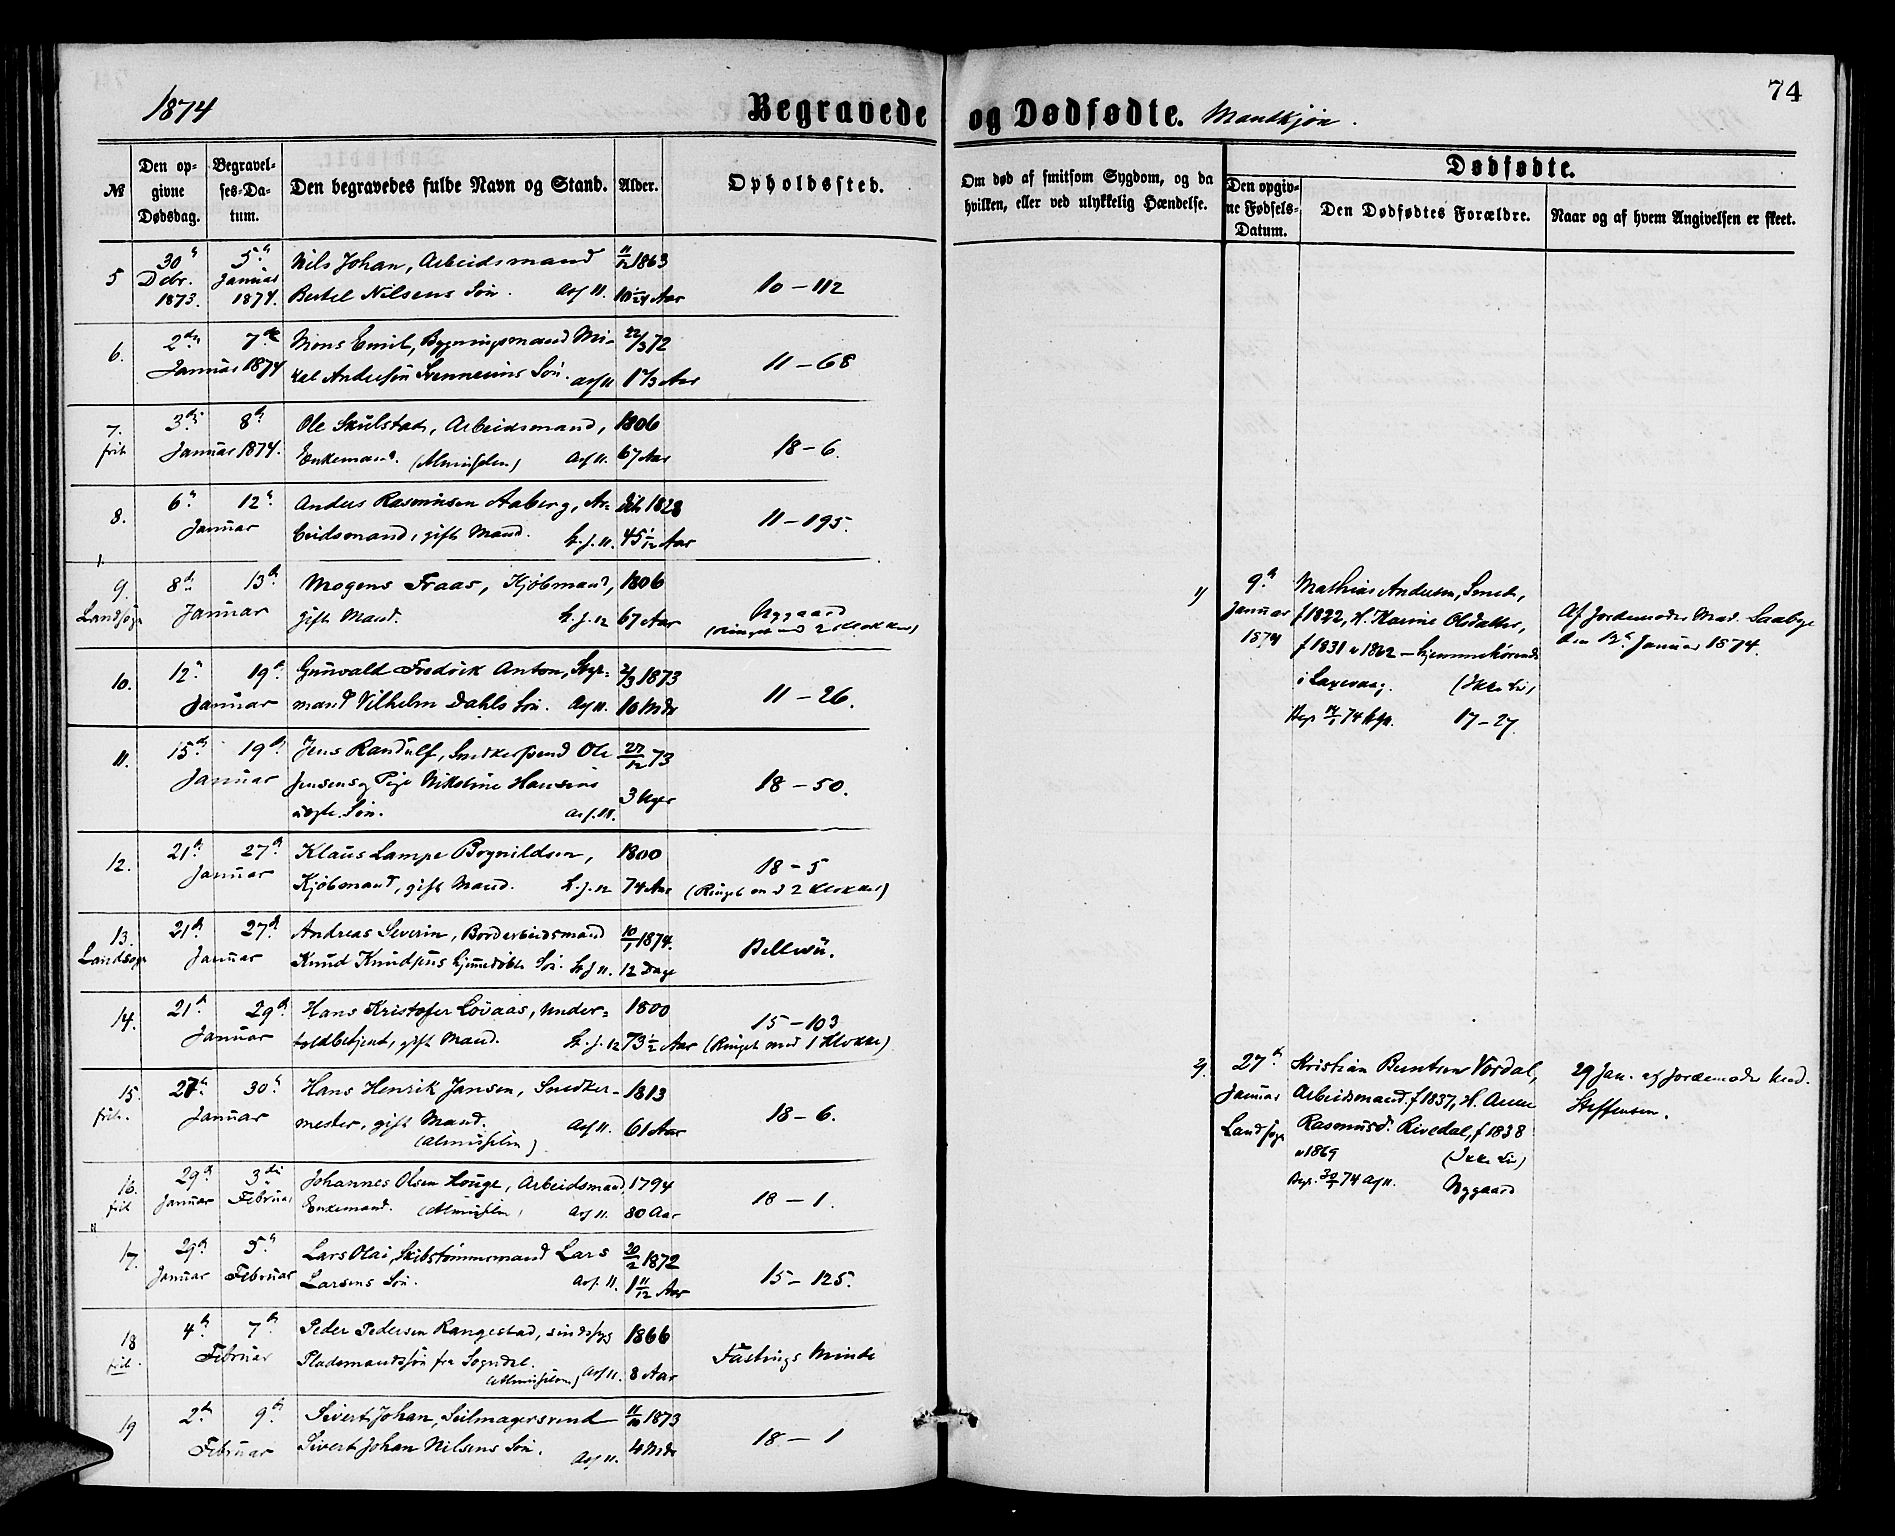 1874
Begravede og Dødfødte. Mandkjøn.
74
№
Den opgivne Dødsdag.
Begravelses-Datum.
Den begravedes fulde Navn og Stand.
Alder.
Opholdssted.
Om død af smitsom Sygdom, og da hvilken, eller ved ulykkelig Hændelse.
Dødfødte.
Den opgivne Fødsels-Datum.
Den Dødfødtes Forældre.
Naar og af hvem Angivelsen er skeet.
5 30 Debr. 1873. 5 Januar 1874.
Nils Johan, Arbeidsmand
Bertel Nilsens Søn. Asf 11.
11/12 1863
10 1/24 Aar
10 – 112
6. 2den 7de Januar 1874
Mons Emil, Bygningsmand Mi-
kal Andersøn Svennevins Søn. Asf 11
22/3 72
11 – 68
7. frit 3die 8de Januar 1874.
Ole Skulstad, Arbeidsmand,
Enkemand. Asf 11.
1806
67 Aar
18 – 6.
8. 6 12 Januar
Anders Rasmusen Aaberg, Ar-
beidsmand, gift Mand. k. j. 11.
1828
45 1/12 Aar
11 – 195.
9. Landsogn 8de 13de Januar
Mogens Fraas, Kjøbmand,
gift Mand. k. j. 12
1806
67 Aar
Nygaard
(Ringet med 2 Klokker)
10. 12 19 Januar
Grunvald Fredrik Anton, Styr-
mand Vilhelm Dahls Søn. Asf 11.
1873
10 Mdr
11 – 26.
11. 15de 19de Januar
Jens Randulf, Snedkersvend Ole
Jensens og Pige Nikoline Hansens
uægte Søn. Asf. 11.
27/12 73
3 Uger
18 – 50.
12. 21 27 Januar
Klaus Lampe Bøgvildsen,
Kjøbmand, gift Mand. k. j. 12
1800
74 Aar
18 – 5
(Ringet med 2 Klokker)
13. Landsogn 21 27 Januar
Andreas Severin, Bordarbeidsmand
Knud Knudsens hjemmedøbte Søn. k j 11.
10/1 1874.
12 Dage
Bellevü.
14. 21 29 Januar
Hans Kristofer Lövaas, Under-
toldbetjent, gift Mand. k. j. 12
1800
73 1/2 Aar
15 – 103
(Ringet med 1 Klokke)
15. frit. 27 30 Januar
Hans Henrik Jansen, Snedker-
mester, gift Mand. Asf 11.
1813
61 Aar
18 – 6.
16. frit 29 Januar 3die Februar
Johannes Olsen Houge, Arbeidsmand,
Enkemand. Asf 11.
1794
80 Aar
18 – 1.
17. 29 Januar 5 Februar
Lars Olai, Skibstømmermand Lars
Larsens Søn. Asf. 11.
1872
1 11/12 Aar
15 – 125.
18 frit. 4 7 Februar
Peder Pedersen Rangestad, sindssyg
Pladsmandssøn fra Sogndal. Asf 11.
1866
8 Aar
Fastings Minde
19 2 9 Februar
Sivert Johan, Seilmagersvend
Sivert Johan Nilsens Søn. Asf 11.
11/10 1873
4 Mdr
18 – 1
1) 9 Januar 1874
Mathias Andersen, Smed,
f 1822, H. Karine Olsdatter,
f 1831 v 1862 – hjemmehørende
i Laxevaag. (Ikke Liv)
Begr 14/1 74 17 – 27.
Af Jordemoder Mad. Saabye
den 12 Januar 1874.
2. 27 Januar Landsogn
Kristian Berntsen Vordal,
Arbeidsmand. f 1837, H. Anne
Rasmusd. Rivedal, f 1838
v 1869 (Ikke Liv)
Begr. 30/1 74 Asf 11. Nygaard
29 Jan. af Jordemoder Mad.
Steffensen.